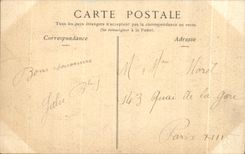 CARTE POSTALE
Tous les pays étrangers n'acceptent pas la correspondance au recto.
(Se renseigner à la Poste).
Correspondance
Adresse
Bons souvenirs
Julie
M. Mme Morel
143 Quai de la Gare
Paris XIII